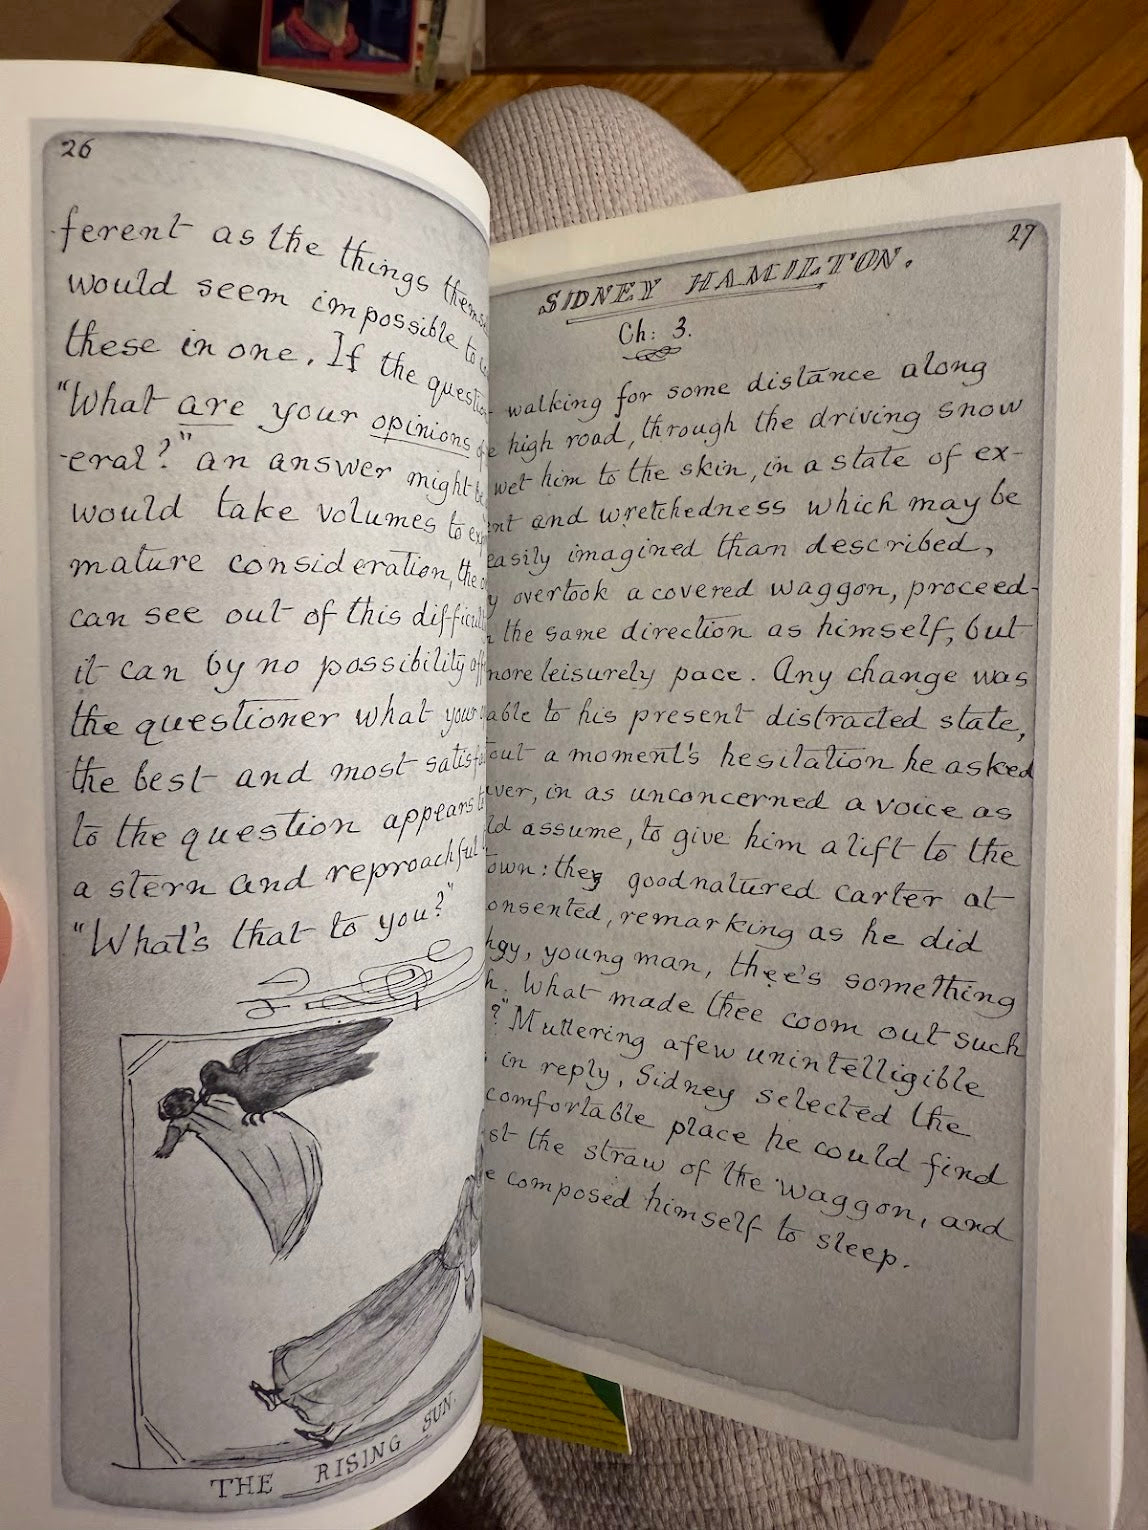 26
ferent as the things
would seem impossible to
these in one. If the
"What are your opinions
-eral?" an answer might
would take volumes to
mature consideration, the
can see out of this
it can by no possibility
the questioner what your
the best and most
to the question appears
a stern and reproachful
"What's that to you?"
THE RISING SUN.
27
SIDNEY HAMILTON.
Ch: 3.
walking for some distance along
high road, through the driving snow
wet him to the skin, in a state of ex-
and wretchedness which may be
easily imagined than described,
overtook a covered waggon, proceed-
the same direction as himself, but
more leisurely pace. Any change was
to his present distracted state,
a moment's hesitation he asked
in as unconcerned a voice as
assume, to give him a lift to the
they goodnatured carter at
remarking as he did
young man, thee's something
What made thee coom out such
?" Muttering a few unintelligible
in reply, Sidney selected the
comfortable place he could find
the straw of the waggon, and
composed himself to sleep.